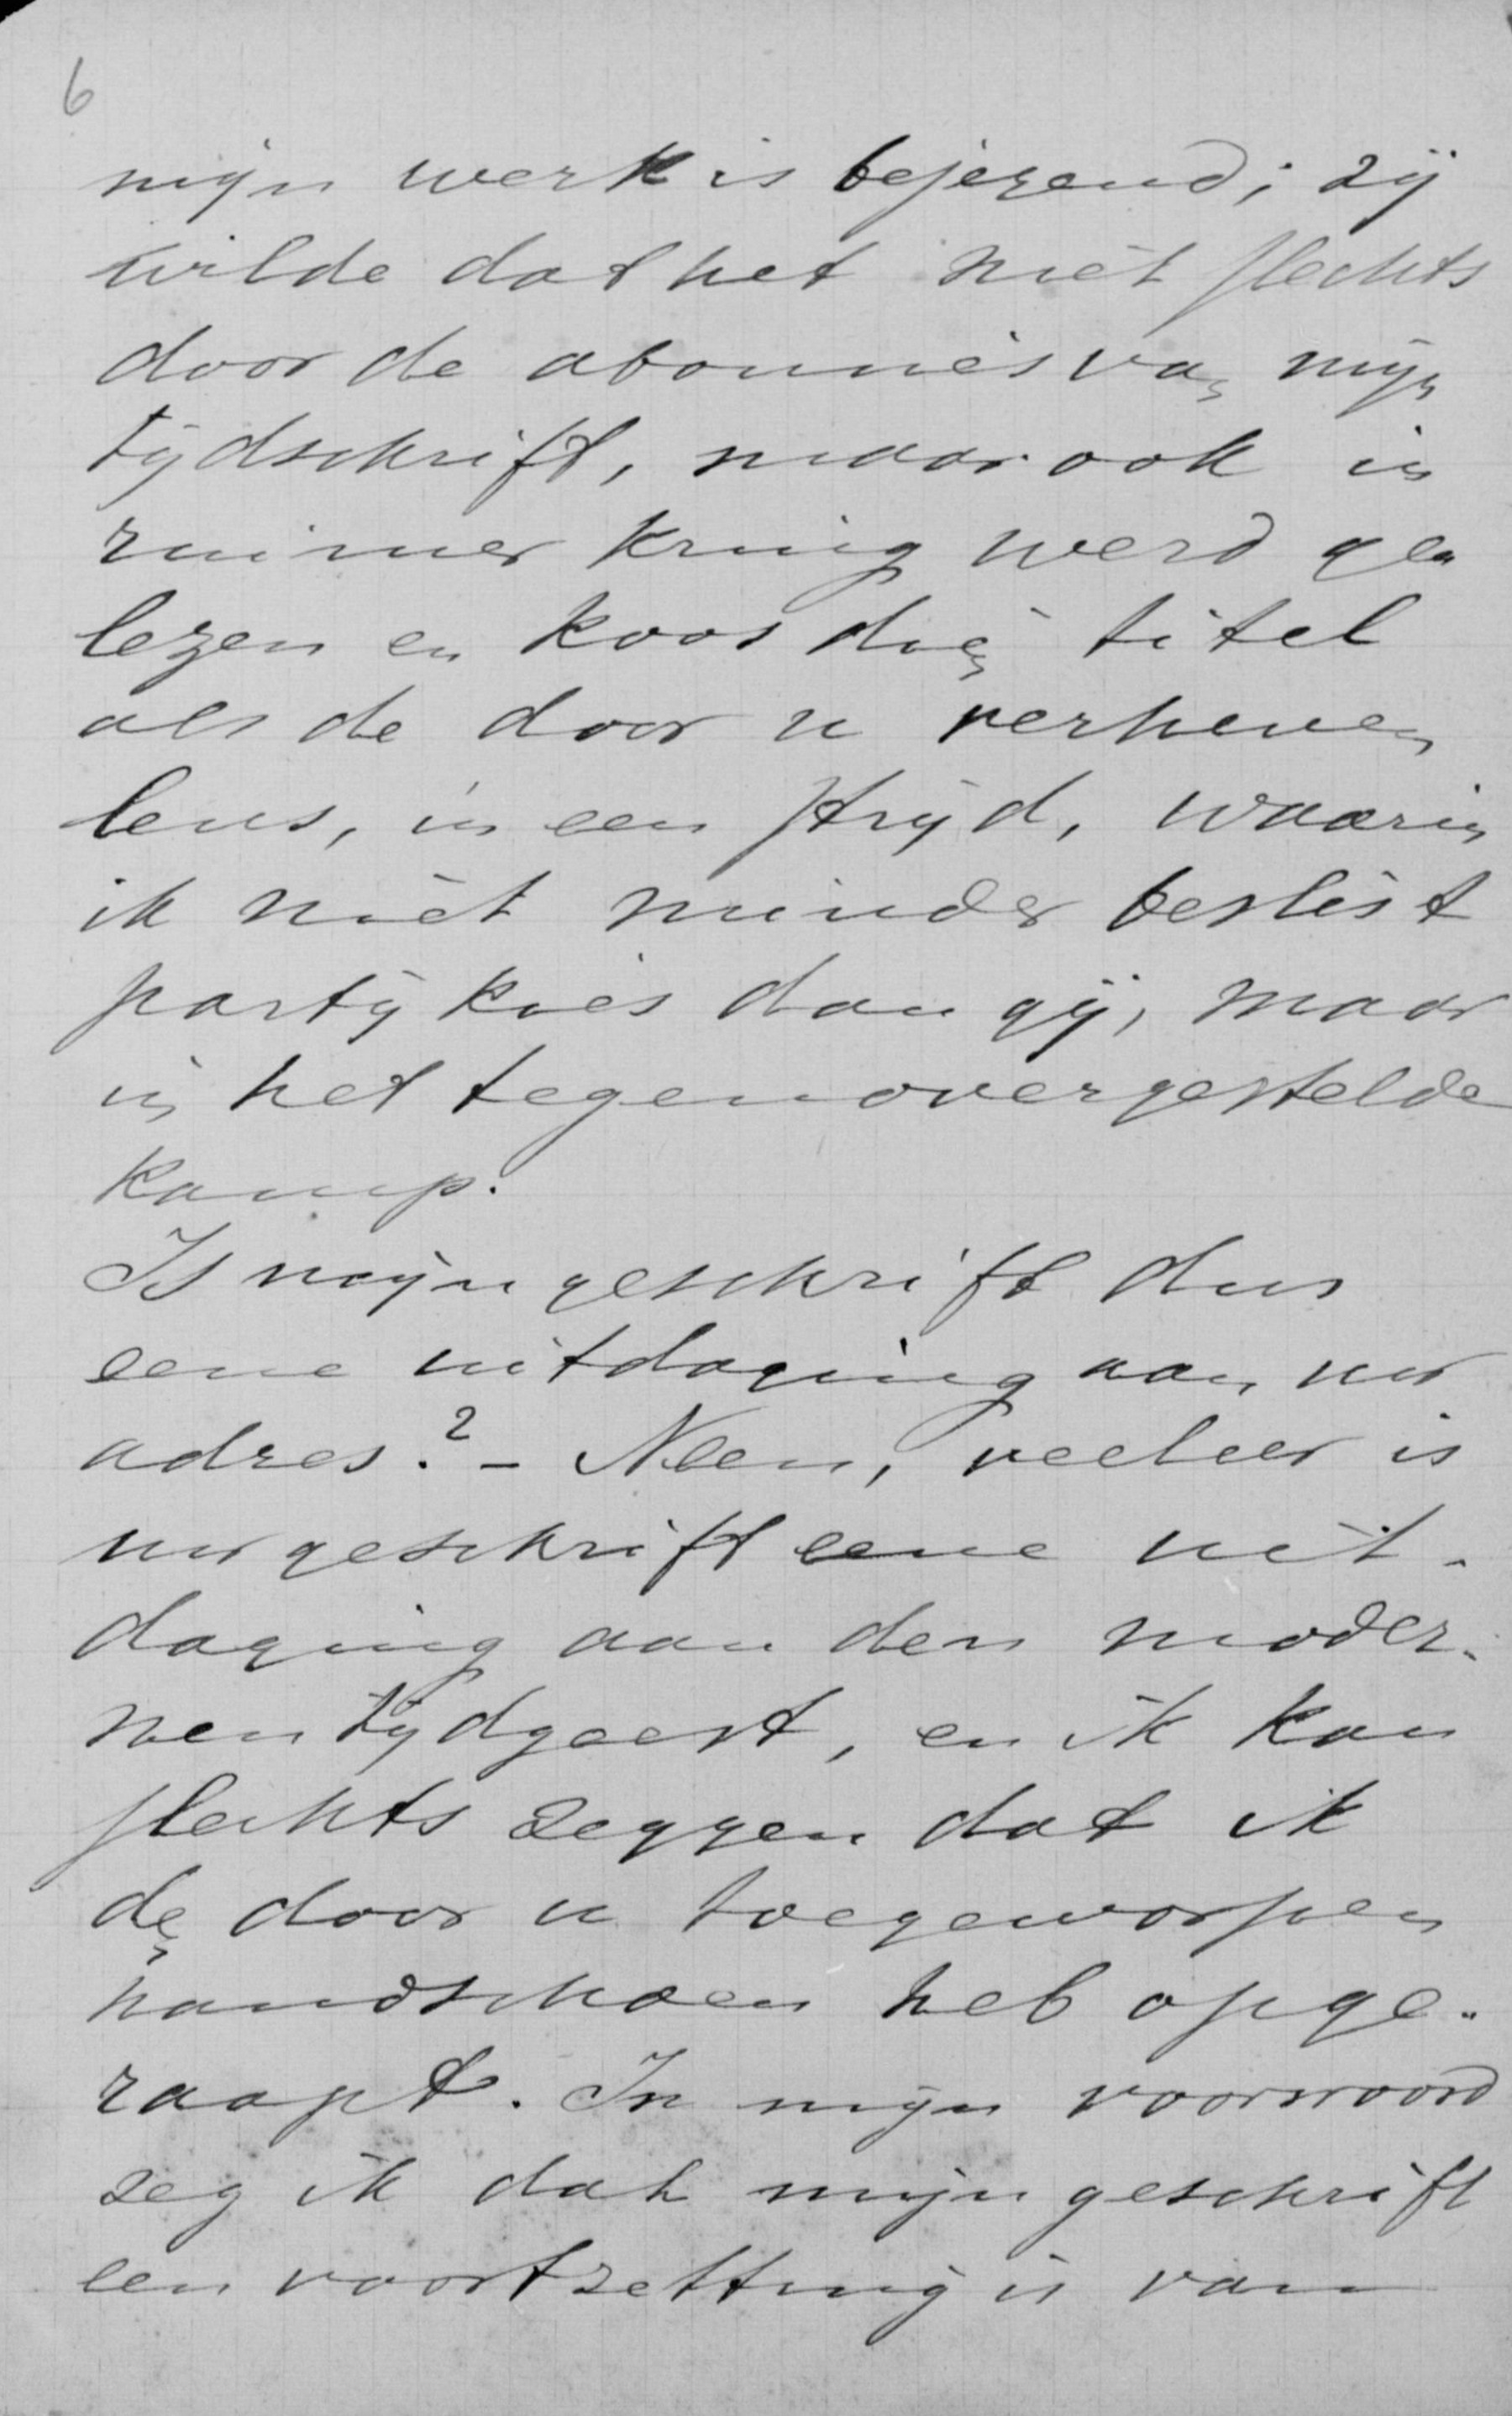 6
mijn werk is bejegend; zij
wilde dat het niet slechts
door de abonnés van mijn
tijdschrift, maar ook in
ruimer kring werd ge„
lezen en koos dien titel
als de door u verheven
leus, in een strijd, waarin
ik niet minder beslist
partij kies dan gij, maar
in het tegenovergestelde
kamp.
Is mijn geschrift dus
eene uitdaging aan uw
adres? – Neen, veeleer is
uw geschrift eene uit-
daging aan den moder-
nen tijdgeest, en ik kan
slechts zeggen dat ik
den door u toegeworpen
handschoen heb opge-
raapt. In mijn voorwoord
zeg ik dat mijn geschrift
een voortzetting is van